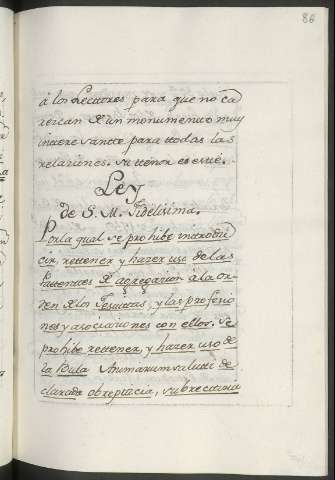 86
á los Lectores para que no ca
rezcan de un monumento muy
interesante para todas las
relaciones. Su tenor es este.
Ley
de S. M. Fidelisima.
Por la qual se prohibe introdu
cir, rettener y hazer uso de las
Pattentes de agregacion á la or
den de los Jesuitas, y las profesio
nes y asociaciones con ellos. Se
prohibe rettener, y hazer uso de
la Bula Animarum saluti de
clarada obrepticia, subrecticia